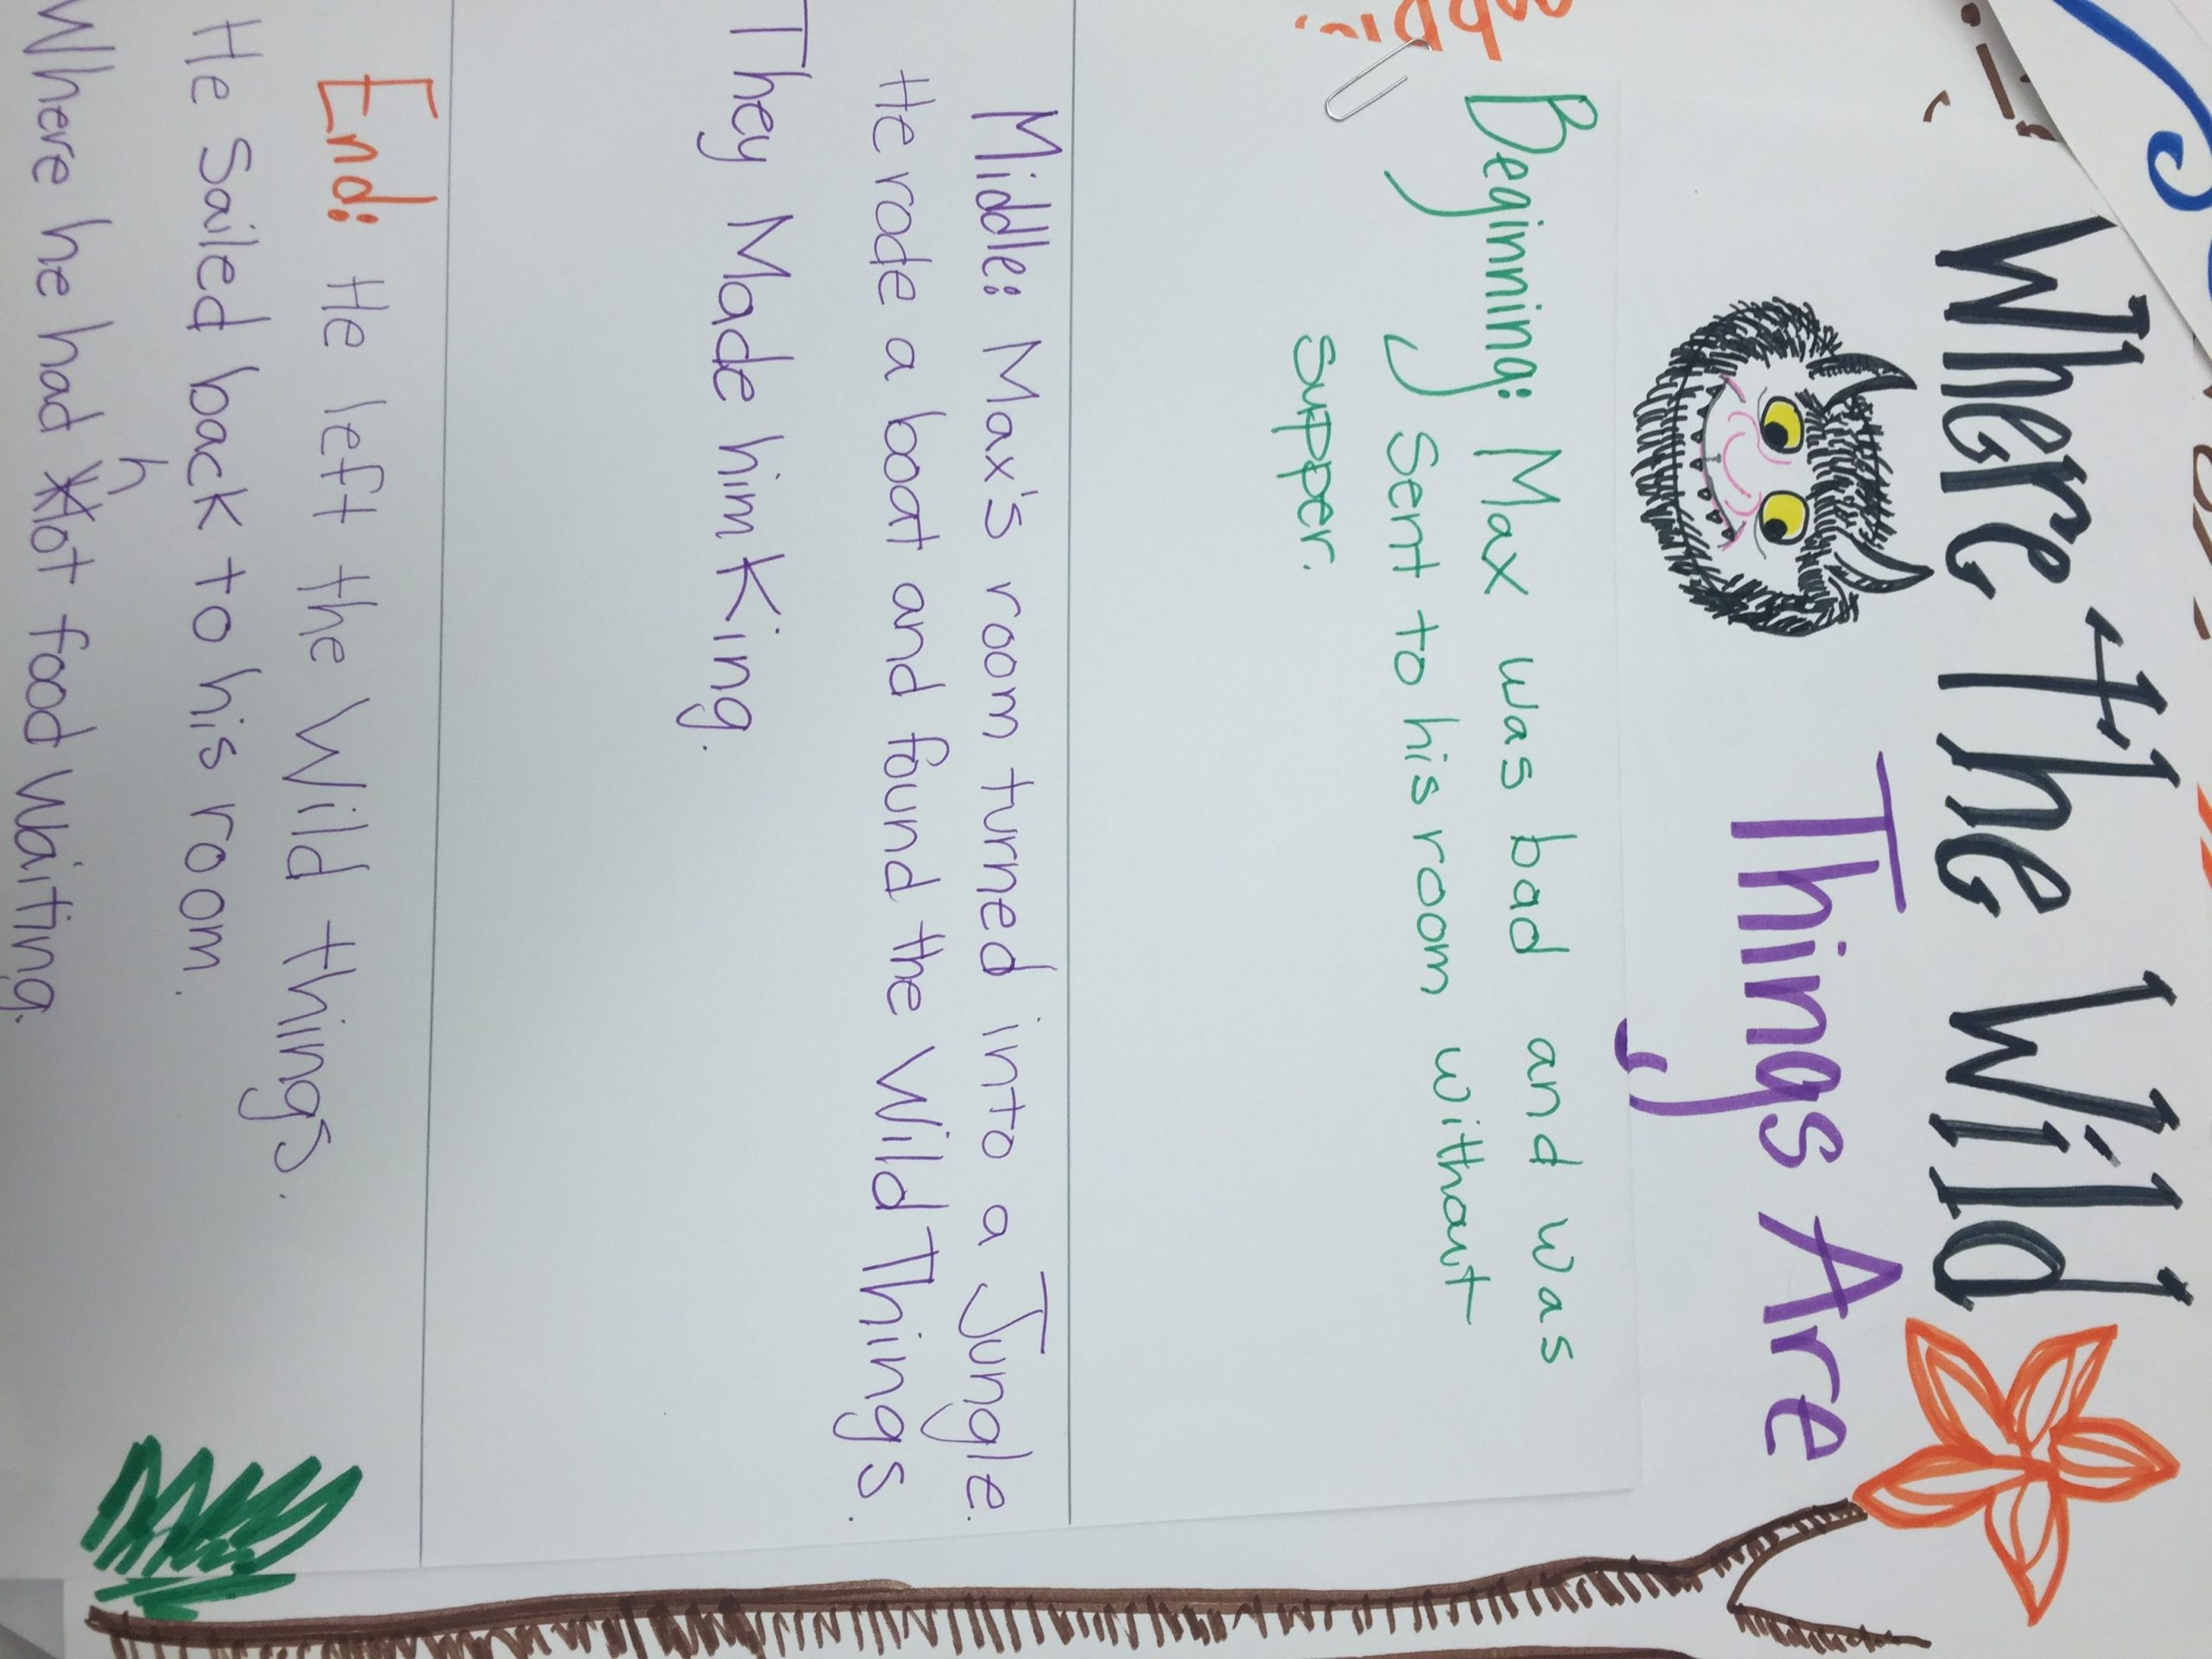 Where the Wild
Things Are
Beginning: Max was bad and was
Sent to his room without
supper.
Middle: Max's room turned into a Jungle.
He rode a boat and found the Wild Things.
They Made him King.
End: He left the Wild things.
He Sailed back to his room.
h
Where he had hot food waiting.